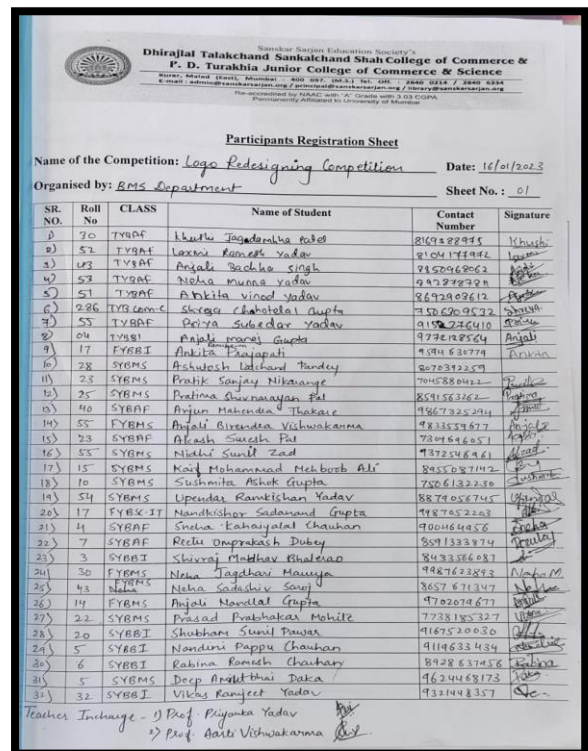 Sanskar Sarjan Education Society's
Dhirajlal Talakchand Sankalchand Shah College of Commerce &
P. D. Turakhia Junior College of Commerce & Science
Kurar, Malad (East), Mumbai - 400 097. (M.S.) Tel. Off. : 2840 0214 / 2840 6334
E-mail : admin@sanskarsarjan.org / principal@sanskarsarjan.org / library@sanskarsarjan.org
Re-accredited by NAAC with "A" Grade with 3.03 CGPA
Permanently Affiliated to University of Mumbai
Participants Registration Sheet
Name of the Competition: Logo Redesigning Competition Date: 16/01/2023
Organised by: BMS Department Sheet No. : 01
SR. NO. Roll No CLASS Name of Student Contact Number Signature
1) 30 TYBAF Khushi Jagadambha Patel Khushi
2) 52 TYBAF Laxmi Ramesh Yadav 8104177972 Laxmi
3) 43 TYBAF Anjali Bachha Singh 8850968062
4) 53 TYBAF Neha Munna Yadav
5) 51 TYBAF Ankita Vinod Yadav 8692903612
6) 286 TYBcom-C Shreya Chhotelal Gupta 7506909532
7) 55 TYBAF Priya Subedar Yadav 9152276410 Priya
8) 04 TYBBI Anjali Manoj Gupta 9772128564 Anjali
9) 17 FYBBI Ankita Prajapati 9594630779 Ankita
10) 28 SYBMS Ashutosh Lalchand Pandey 8070392259
11) 23 SYBMS Pratik Sanjay Nikarange 7045880422
12) 25 SYBMS Pratima Shivnarayan Pal 8591563262
13) 40 SYBAF Arjun Mahendra Thakare 9867325294
14) 55 FYBMS Anjali Birendra Vishwakarma 9833559677 Anjali
15) 23 SYBAF Akash Suresh Pal 7304696051
16) 55 SYBMS Nidhi Sunil Zad 9372546961
17) 15 SYBMS Kaif Mohammad Mehboob Ali 8955087142
18) 10 SYBMS Sushmita Ashok Gupta 7506132230 Sushmita
19) 54 SYBMS Upendar Ramkishan Yadav 8879056745
20) 17 FYBSC-IT Nandkishor Sadanand Gupta 9987052203
21) 4 SYBAF Sneha Kahaiyalal Chauhan 900464956 Sneha
22) 7 SYBAF Reetu Omprakash Dubey 8591333874
23) 3 SYBBI Shivraj Madhav Bhalerao 8433566087
24) 30 FYBMS Neha Jagdhari Maurya 9987623893 Neha M.
25) 43 FYBMS Neha Sadashiv Saroj 8657671347
26) 14 FYBMS Anjali Nandlal Gupta 9702079677
27) 22 SYBMS Prasad Prabhakar Mohite 7738185327
28) 20 SYBBI Shubham Sunil Pawar 9167520030
29) 5 SYBBI Nandini Pappu Chauhan 9119633434
30) 6 SYBBI Rabina Ramesh Chauhan 8928637956 Rabina
31) 5 SYBMS Deep Daka 9624468173
32) 32 SYBBI Vikas Ramjeet Yadav 9321448357
Teacher Incharge - 1) Prof. Priyanka Yadav
2) Prof. Aarti Vishwakarma